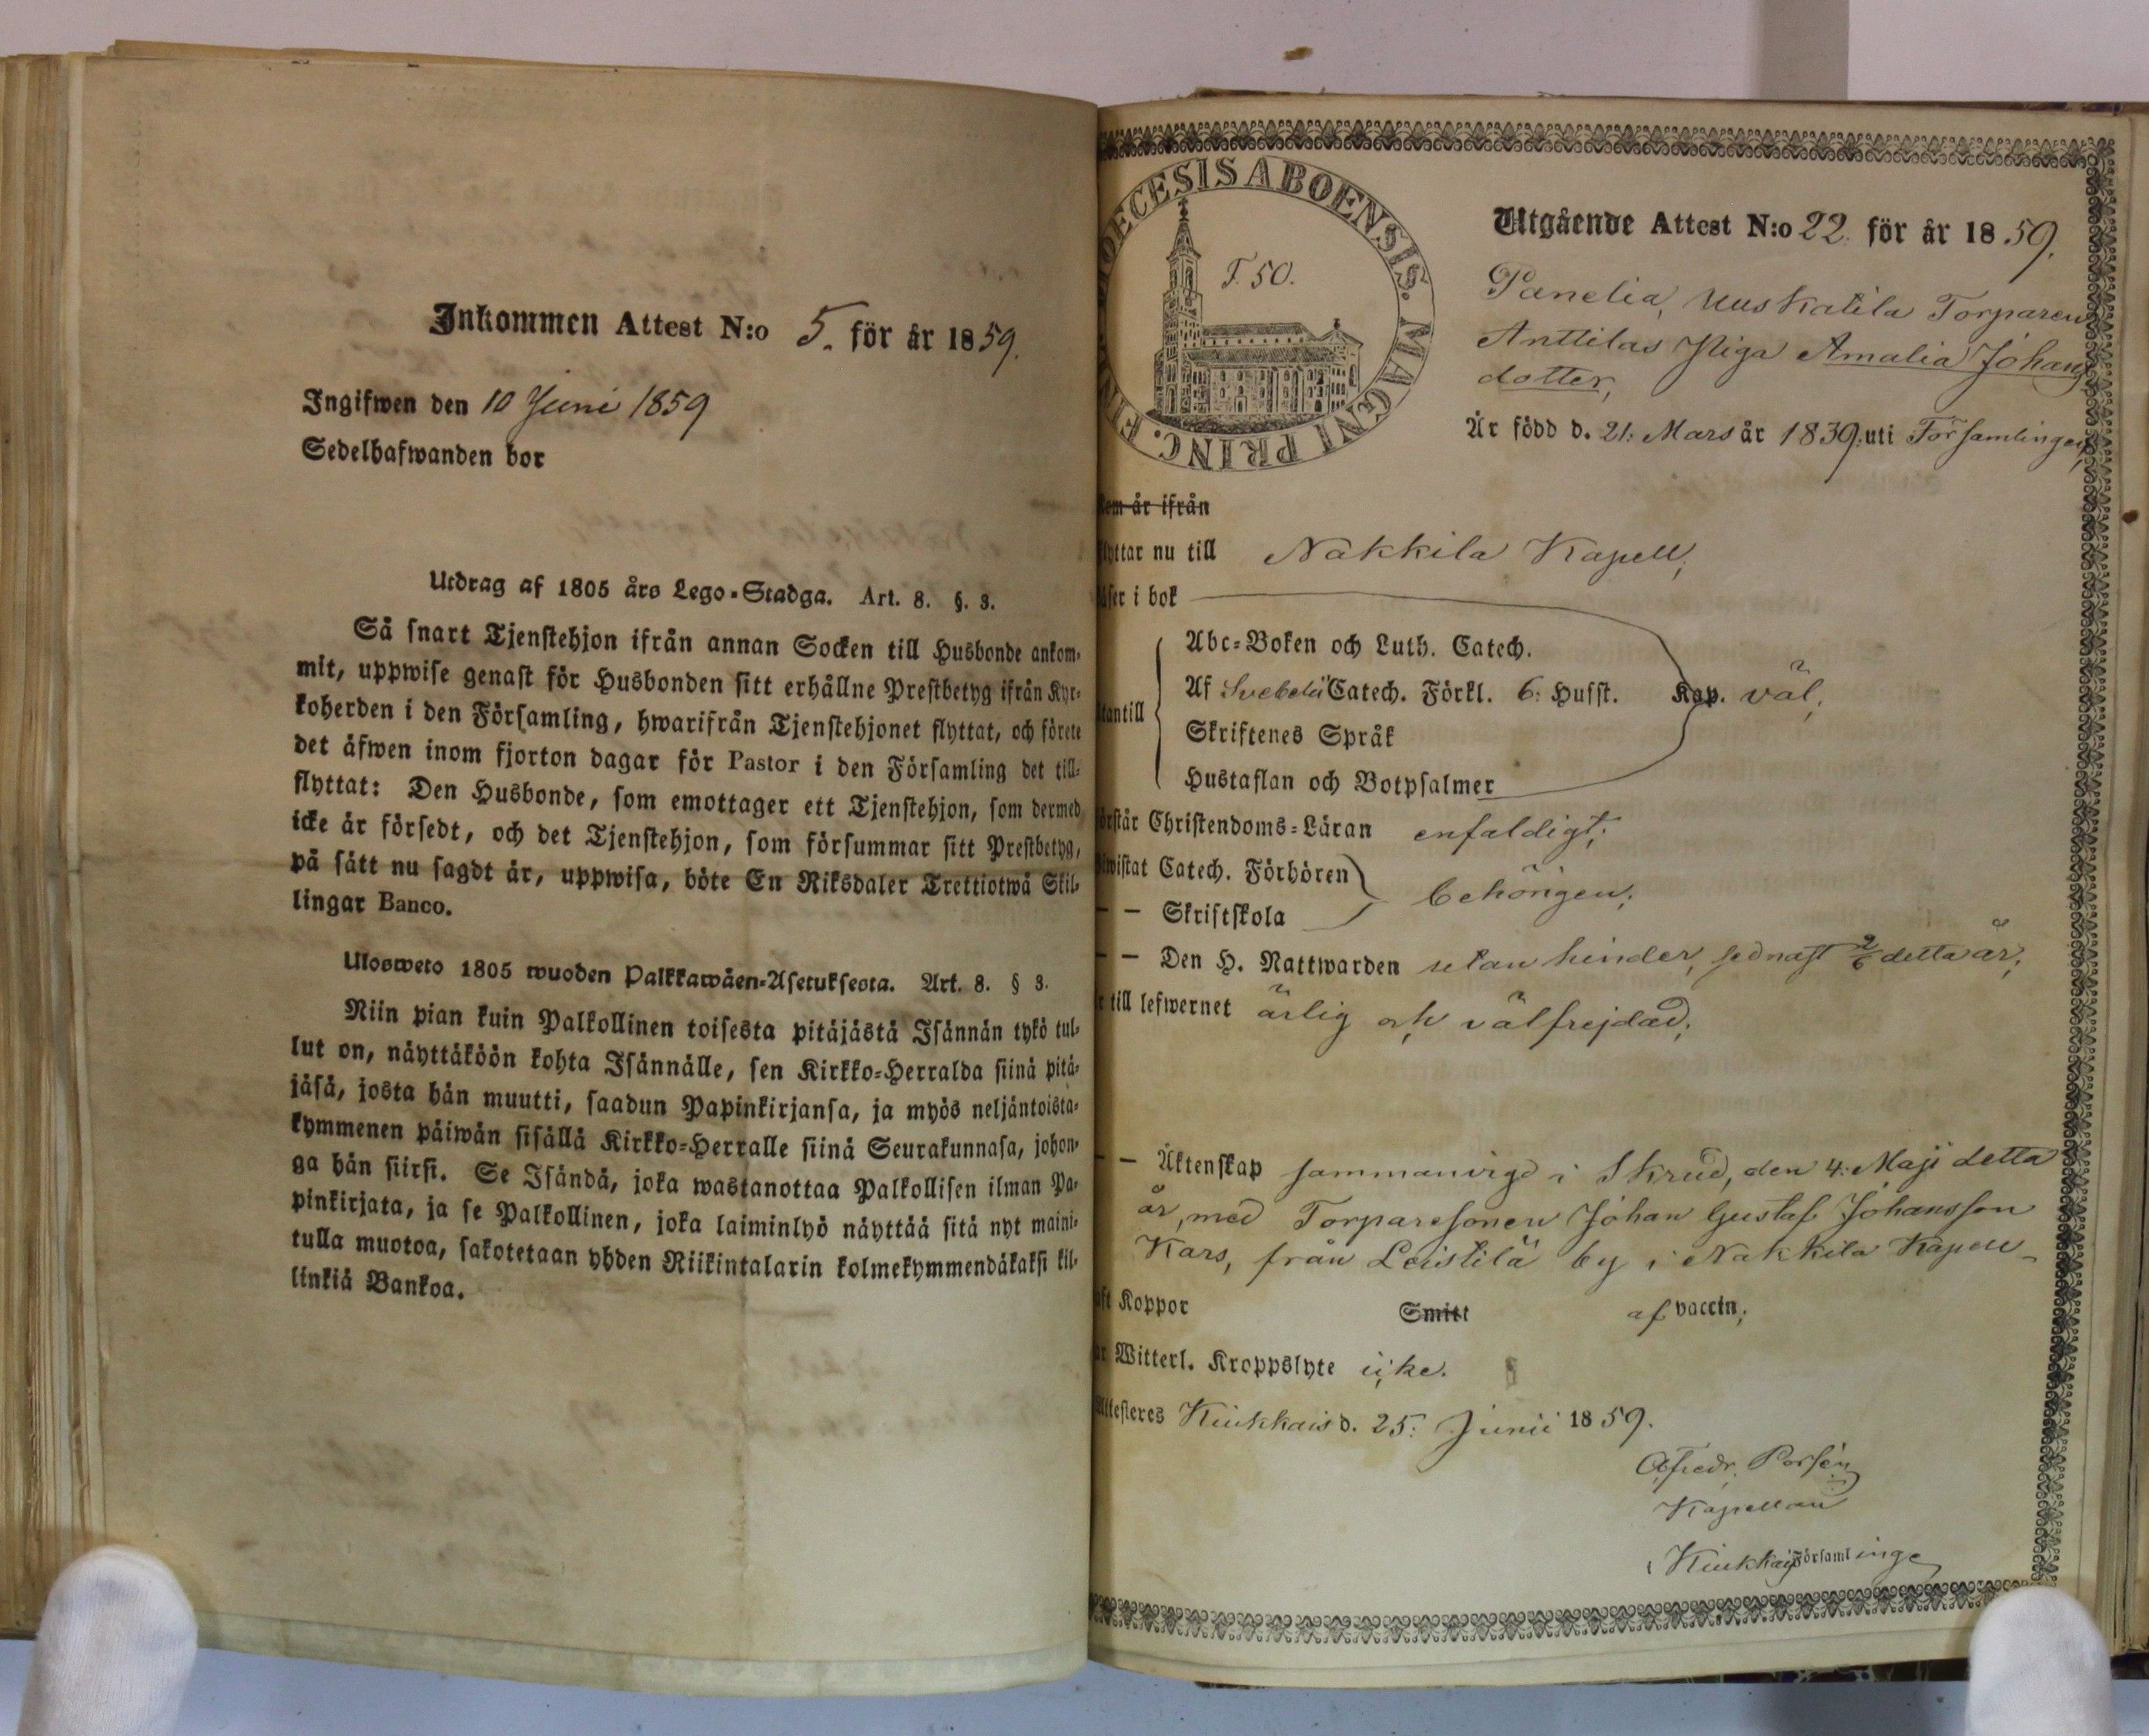 Inkommen Attest N:o 5. för år 1859.
Ingifwen den 10 Juni 1859
Sedelhafwanden bor
Utdrag af 1805 års Lego-Stadga. Art. 8. §. 3.
Så snart Tjenstehjon ifrån annan Socken till Husbonde ankom-
mit, uppwise genast för Husbonden sitt erhållne Prestbetyg ifrån Kyr-
koherden i den Församling, hwarifrån Tjenstehjonet flyttat, och förete
det äfwen inom fjorton dagar för Pastor i den Församling det till-
flyttat: Den Husbonde, som emottager ett Tjenstehjon, som dermed
icke är försedt, och det Tjenstehjon, som försummar sitt Prestbetyg,
på sätt nu sagdt är, uppwisa, böte En Riksdaler Trettiotwå Skil-
lingar Banco.
Ulosweto 1805 wuoden Palkkawäen-Asetuksesta. Art. 8. § 3.
Niin pian kuin Palkollinen toisesta pitäjästä Isännän tykö tul-
lut on, näyttäköön kohta Isännälle, sen Kirkko-Herralda siinä pitä-
jäsä, josta hän muutti, saadun Papinkirjansa, ja myös neljäntoista-
kymmenen päiwän sisällä Kirkko-Herralle siinä Seurakunnasa, johon-
ga hän siirsi. Se Isändä, joka wastanottaa Palkollisen ilman Pa-
pinkirjata, ja se Palkollinen, joka laiminlyö näyttää sitä nyt maini-
tulla muotoa, sakotetaan yhden Riikintalarin kolmekymmendäkaksi kil-
linkiä Bankoa.
DIOECESIS ABOENSIS. MAGNI PRINC. FINL
T. 50.
Utgående Attest N:o 22. för år 1859.
Panelia, Uuskatila Torparen
Anttilas Piga Amalia Johans
dotter,
Är född d. 21: Mars år 1839: uti Församlingen,
som är ifrån
flyttar nu till Nakkila Kapell;
läser i bok
Abc-Boken och Luth. Catech.
Af Svebelii Catech. Förkl. 6: Hufst. Kap. väl;
utantill
Skriftenes Språk
Hustaflan och Botpsalmer
förstår Christendoms-Läran enfaldigt;
bewistat Catech. Förhören
behörigen;
— — Skriftskola
— — Den H. Nattwarden utan hinder, sednast 2/6 detta år;
är till lefwernet ärlig och välfrejdad;
— — Äktenskap sammanvigd i Skrud, den 4: Maji detta
år, med Torparesonen Johan Gustaf Johansson
Kars, från Leistilä by i Nakkila Kapell
haft Koppor Smitt af vaccin;
har Witterl. Kroppslyte icke.
Attesteres Kiukkais d. 25: Junii 1859.
A. Fredr. Porsén
Kapellan
i Kiukkais Församlinge